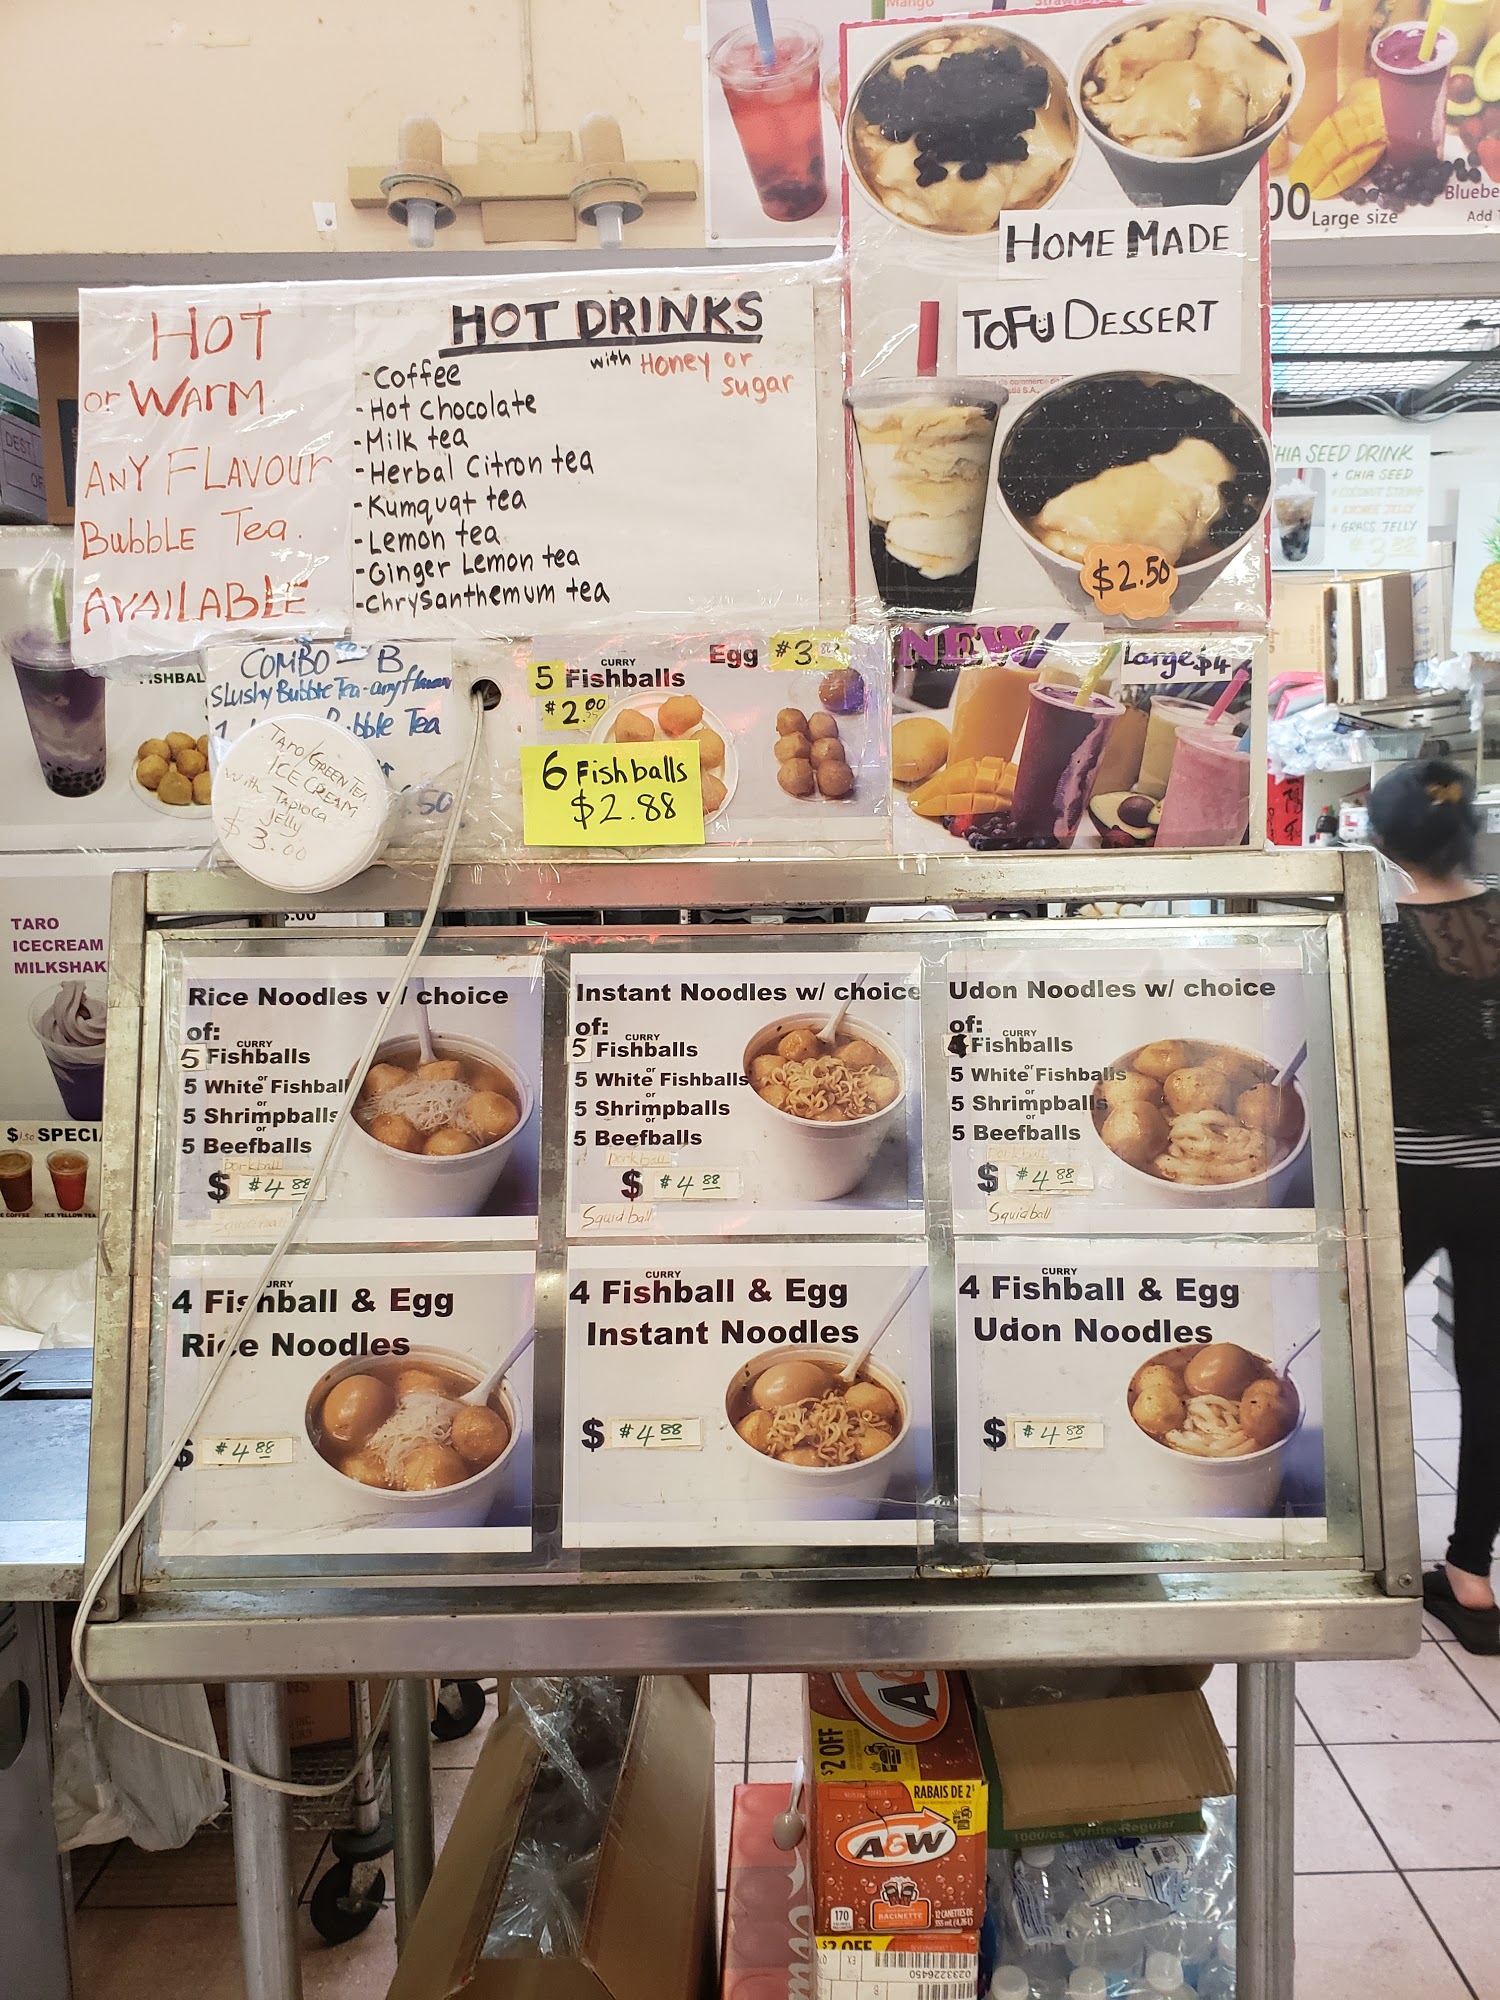 Mango
HOME MADE
TOFU DESSERT
$2.50
00 Large size
Bluebe
Add
HOT
or WARM
ANY FLAVOUR
Bubble Tea.
AVAILABLE
HOT DRINKS
with Honey or
sugar
-Coffee
-Hot Chocolate
-Milk tea
-Herbal Citron tea
-Kumquat tea
-Lemon tea
-Ginger Lemon tea
-Chrysanthemum tea
HIA SEED DRINK
+ CHIA SEED
+ LYCHEE JELLY
+ GRASS JELLY
$3.88
FISHBAL
COMBO B
Slushy Bubble Tea-any flavour
bble Tea
.50
TARO/GREEN TEA
ICE CREAM
with TAPIOCA
JELLY
$3.00
CURRY
5 Fishballs
$2.00
Egg $3.
6 Fishballs
$2.88
NEW
Large $4
TARO
ICECREAM
MILKSHAK
$1.50 SPECI
ICE YELLOW TEA
Rice Noodles w/ choice
of:
CURRY
5 Fishballs
or
5 White Fishball
or
5 Shrimpballs
or
5 Beefballs
porkball
$ $4.88
Instant Noodles w/ choice
of:
CURRY
5 Fishballs
or
5 White Fishballs
or
5 Shrimpballs
or
5 Beefballs
porkball
$ $4.88
Squidball
Udon Noodles w/ choice
of:
CURRY
Fishballs
or
5 White Fishballs
or
5 Shrimpballs
or
5 Beefballs
porkball
$ $4.88
Squidball
CURRY
4 Fishball & Egg
Rice Noodles
$ $4.88
CURRY
4 Fishball & Egg
Instant Noodles
$ $4.88
CURRY
4 Fishball & Egg
Udon Noodles
$ $4.88
$2 OFF
RABAIS DE 2$
A&W
RACINETTE
170
12 CANETTES DE
$2 OFF
0233226450
1000/cs. White, Regular